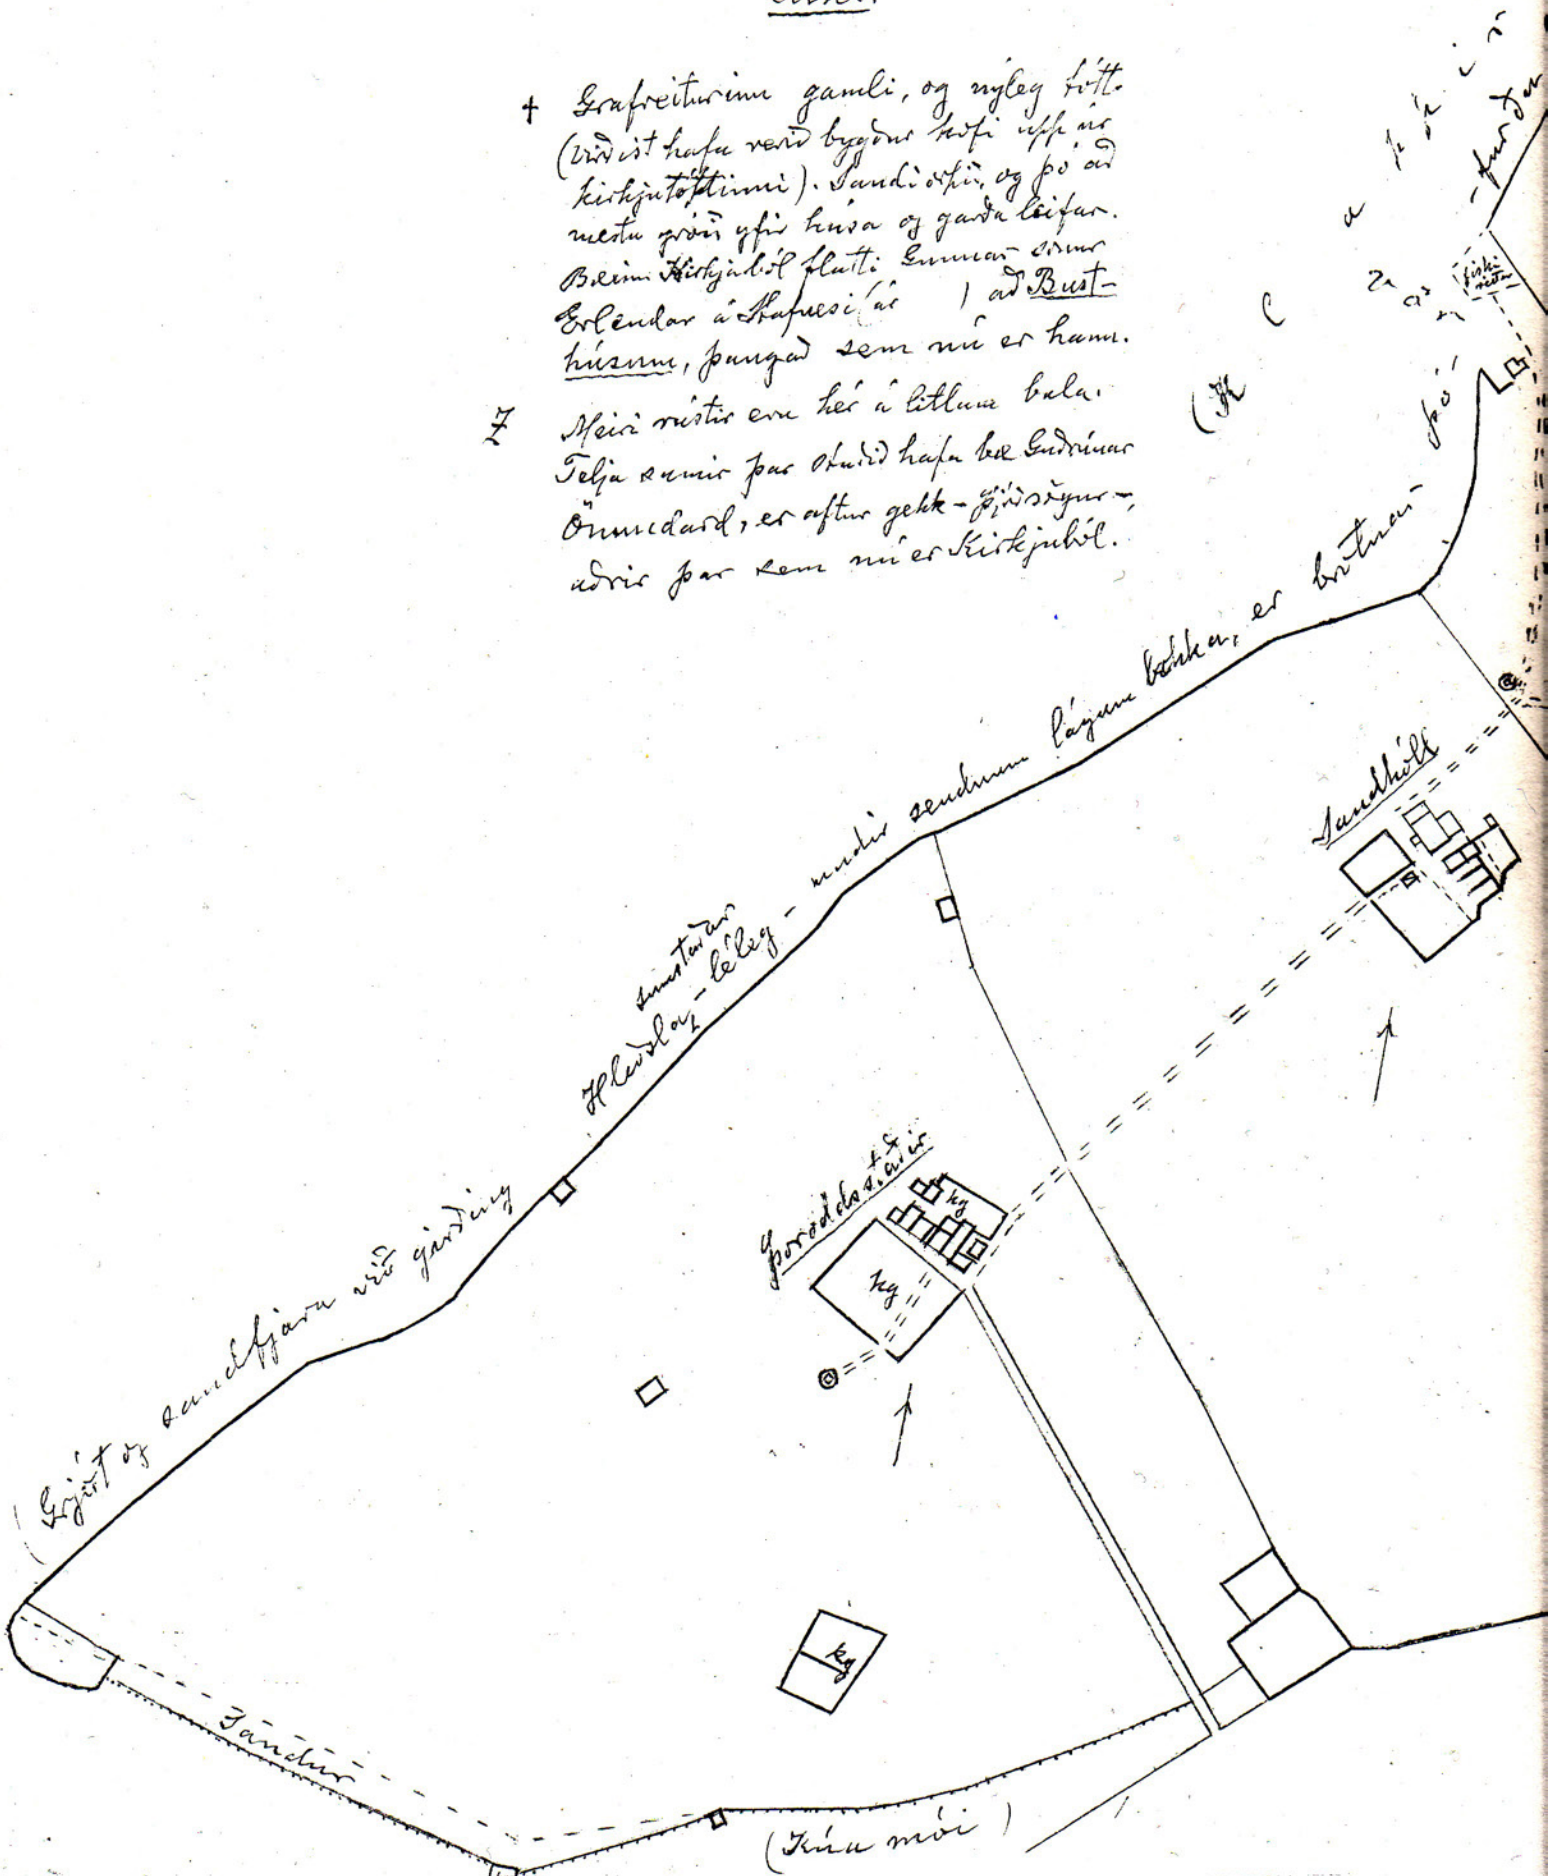 + Grafreiturinn gamli, og nýleg tótt.
(virðist hafa verið byggður kofi upp úr
kirkjutóftinni). Sandi orpið, og þó að
mestu gróið yfir húsa og garða leifar.
Bæinn Kirkjuból flutti Gunnar sonur
Erlendar á Stafnesi (ár ) að Bust-
húsum, þangað sem nú er hann.
Z Meiri rústir eru hér á litlum bala.
Telja sumir þar staðið hafa bæ Guðrúnar
Önundard, er aftur gekk - þjóðsögur -,
aðrir þar sem nú er Kirkjuból.
fiski
reitur
Sandhóll
sumstaðar
Hleðsla, - léleg - undir sendnum lágum bakka, er brotnar þó
- furðu
Þóroddsstaðir
kg
kg
(Grjót og sandfjara við girðing
kg
Sandur
(Kúa mói)